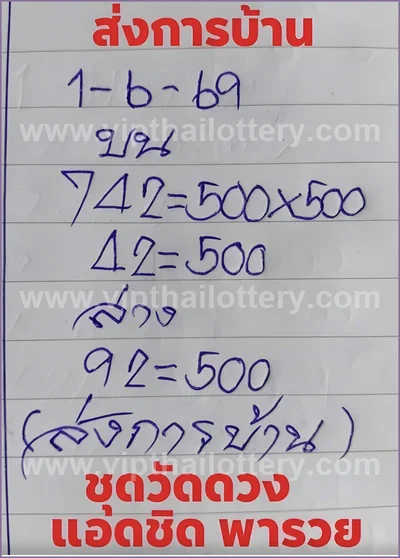 ส่งการบ้าน
1-6-69
www.vipthailottery.com
บน
742=500x500
42=500
www.vipthailottery.com
ล่าง
92=500
(ส่งการบ้าน)
www.vipthailottery.com
ชุดวัดดวง
แอดชิด พารวย